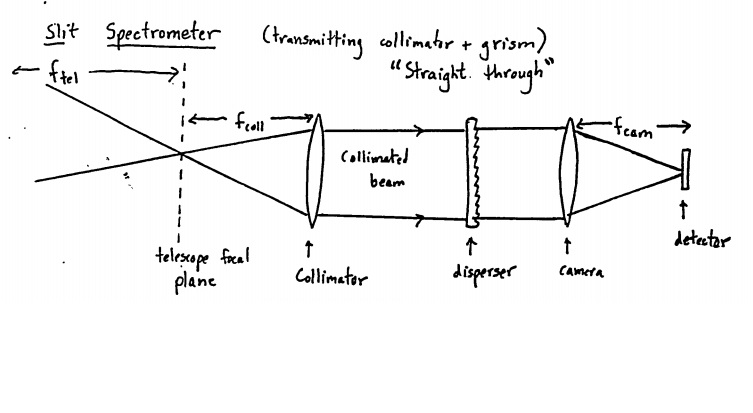 Slit Spectrometer (transmitting collimator + grism)
"Straight through"
f tel
f coll
f cam
Collimated
beam
telescope focal
plane
Collimator
disperser
camera
detector